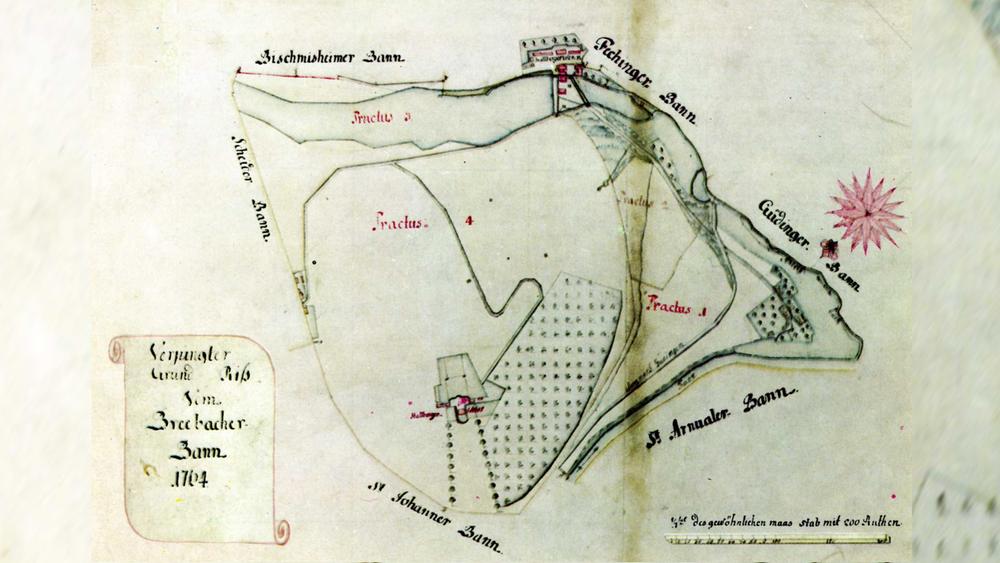 Bischmisheimer Bann
Fechinger Bann
Scheiter Bann.
Tractus 3
Tractus 2
Tractus 4
Tractus 1
Guidinger Bann
St Arnualer Bann.
St Johanner Bann.
Verjungter
Grund Riß
Vom
Breebacher
Bann
1764
des gewöhnlichen maas stab mit 200 Ruthen